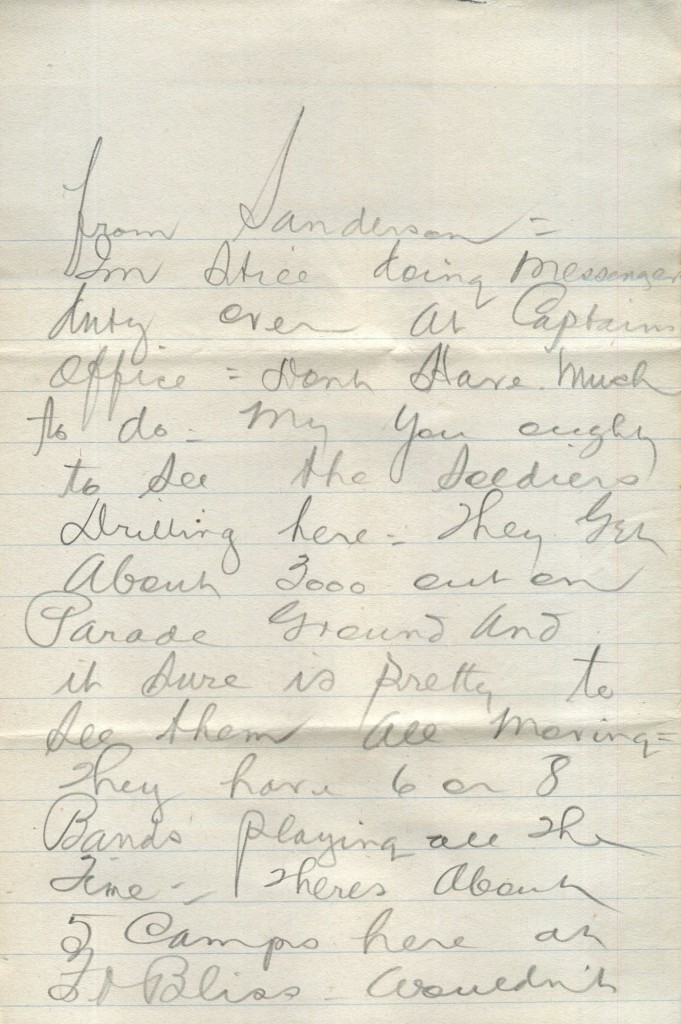 from Sanderson =
Im still doing Messenger
duty over at Captains
Office = Dont Have Much
to do - My you ought
to see the Soldiers
Drilling here - They Get
About 3000 out on
Parade Ground And
it sure is pretty to
see them all moving =
They have 6 or 8
Bands playing all the
Time - Theres About
5 Camps here at
Ft Bliss - Wouldn't